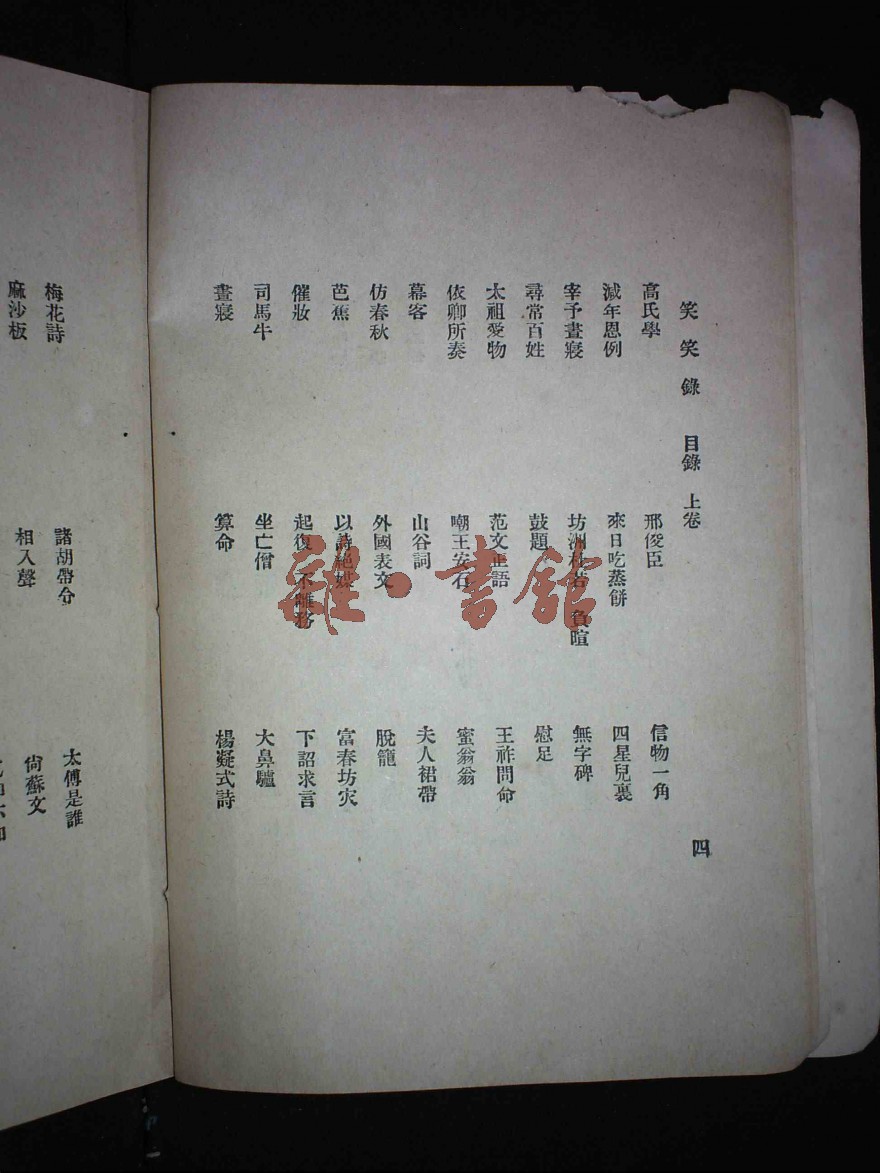 笑笑錄 目錄 上卷 四
高氏學 邢俊臣 信物一角
減年恩例 來日吃蒸餅 四星兒裏
宰予晝寢 坊洲杜若 負暄 無字碑
尋常百姓 鼓題 慰足
太祖愛物 范文正語 王祚問命
依卿所奏 嘲王安石 蜜翁翁
幕客 山谷詞 夫人裙帶
仿春秋 外國表文 脫籠
芭蕉 以詩絕婚 富春坊灾
催妝 起復 不離務 下詔求言
司馬牛 坐亡僧 大鼻驢
晝寢 算命 楊凝式詩
梅花詩 諸胡帶令 太傅是誰
麻沙板 相入聲 尙蘇文
雜·書館